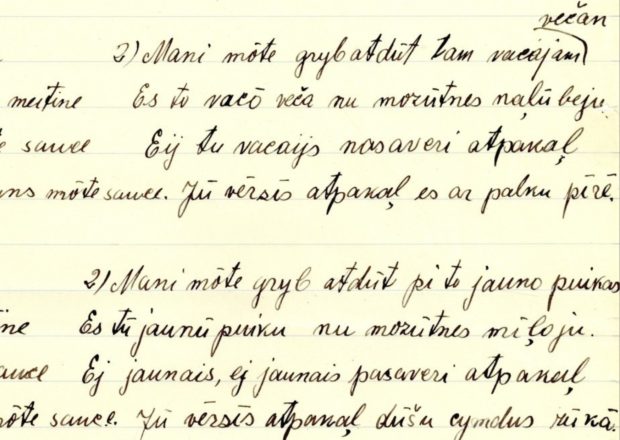 večan
2) Mani môte gryb atdūt tam vacajam
meitine Es to vacō veča nu mozūtnes naļūbeju.
sauce Eij tu vacaijs nasaveri atpakaļ
môte sauce. Jū vērsīs atpakaļ es ar palku pīrē.
2) Mani môte gryb atdūt pi to jauno puikas
Es tū jaunū puiku nu mozūtnes miļoju.
Ej jaunais, ej jaunais pasaveri atpakaļ
sauce. Jū vērsīs atpakaļ dūšu cymdus rūkā.